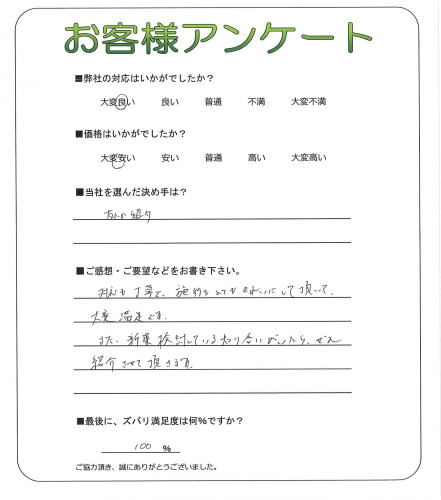 お客様アンケート
■弊社の対応はいかがでしたか?
大変良い 良い 普通 不満 大変不満
■価格はいかがでしたか?
大変安い 安い 普通 高い 大変高い
■当社を選んだ決め手は?
友人の紹介
■ご感想・ご要望などをお書き下さい。
対応も丁寧で、施術もとてもきれいにして頂いて、
大変満足です。
また、新築検討している知り合いがいたら、ぜひ
紹介させて頂きます。
■最後に、ズバリ満足度は何%ですか?
100 %
ご協力頂き、誠にありがとうございました。